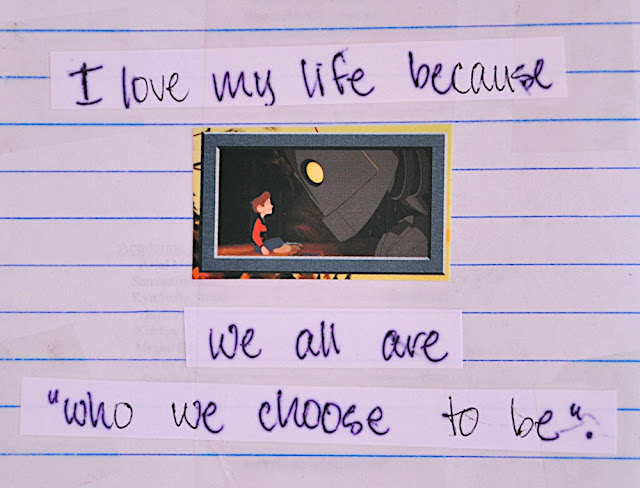 I love my life because
we all are
"who we choose to be".